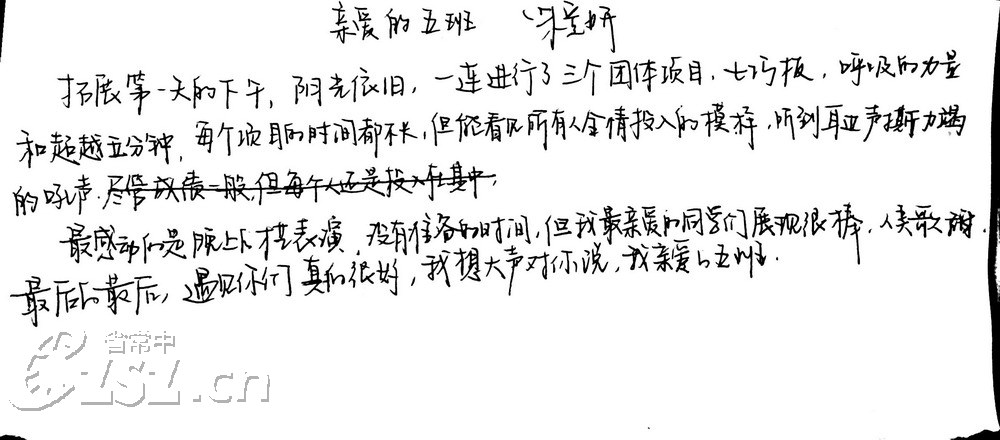 亲爱的五班
拓展第一天的下午,阳光依旧,一连进行了三个团体项目,七巧板,呼吸的力量
和超越五分钟,每个项目的时间都不长,但能看见所有人全情投入的模样,听到声撕力竭
的吼声.尽管成绩一般,但每个人还是投入在其中,
最感动的是晚上的才艺表演,没有准备的时间,但我最亲爱的同学们展现很棒,
最后的最后,遇见你们真的很好,我想大声对你说,我亲爱的五班.
省常中
CZSZ.cn